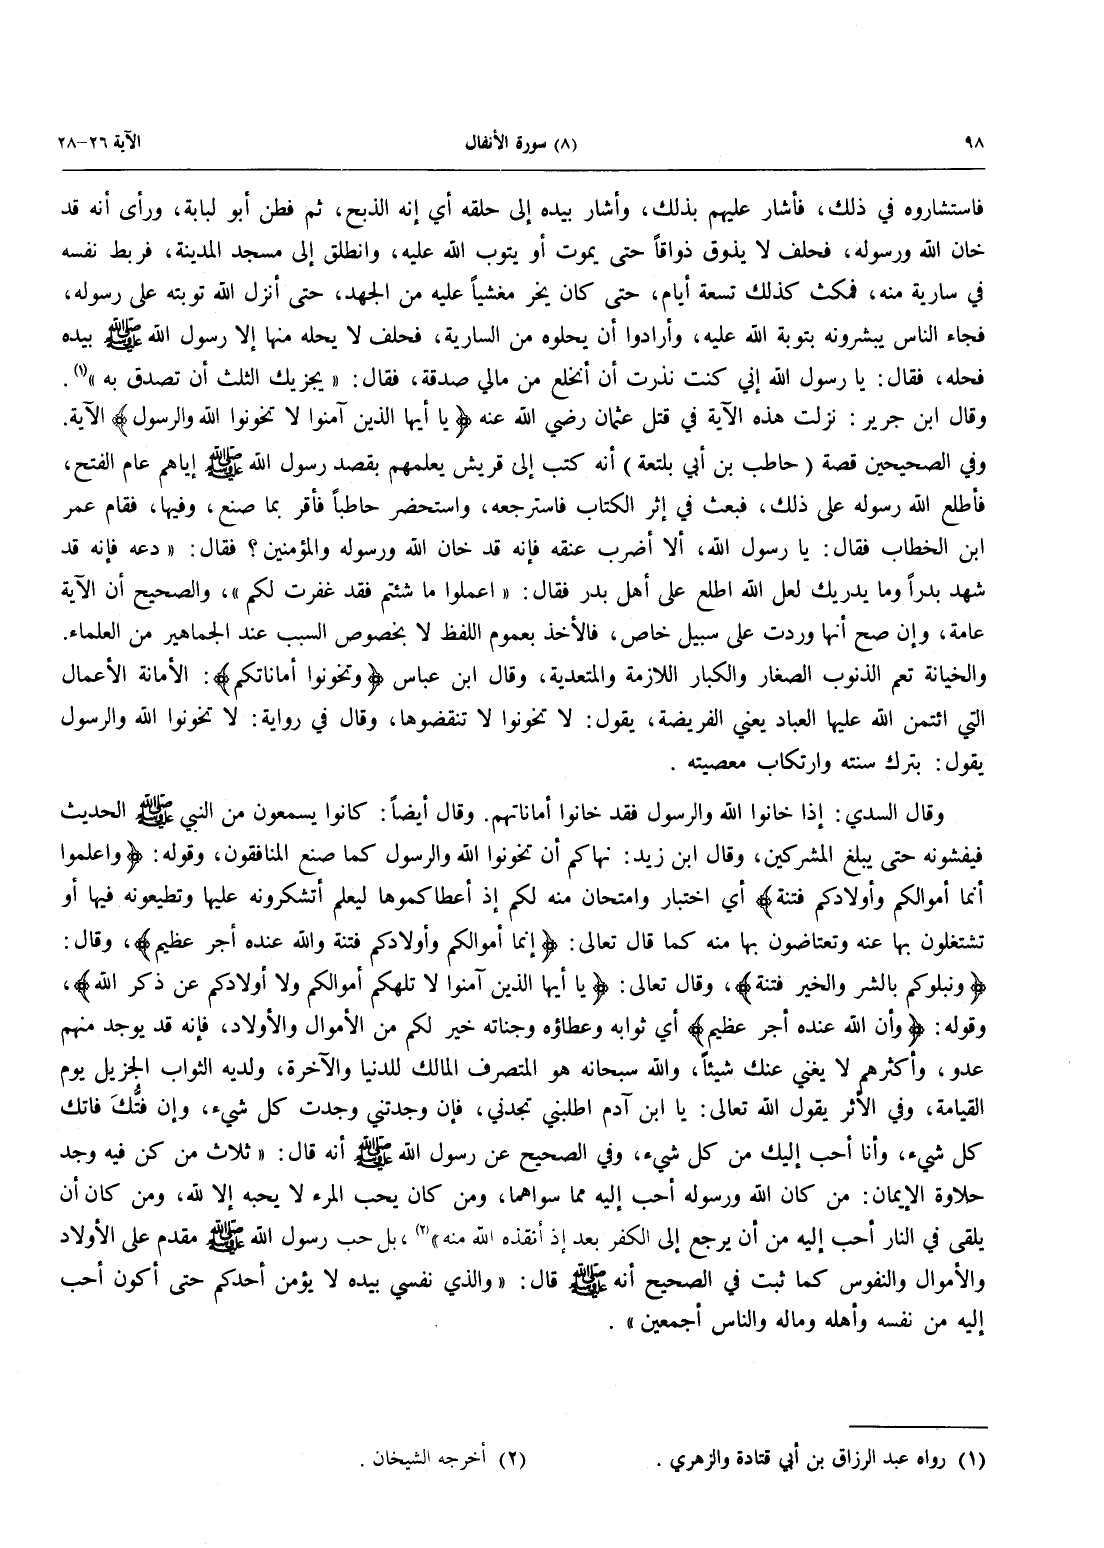 ٩٨ (٨) سورة الأنفال الآية ٢٦-٢٨
فاستشاروه في ذلك، فأشار عليهم بذلك، وأشار بيده إلى حلقه أي إنه الذبح، ثم فطن أبو لبابة، ورأى أنه قد
خان الله ورسوله، فحلف لا يذوق ذواقاً حتى يموت أو يتوب الله عليه، وانطلق إلى مسجد المدينة، فربط نفسه
في سارية منه، فمكث كذلك تسعة أيام، حتى كان يخر مغشياً عليه من الجهد، حتى أنزل الله توبته على رسوله،
فجاء الناس يبشرونه بتوبة الله عليه، وأرادوا أن يحلوه من السارية، فحلف لا يحله منها إلا رسول الله ﷺ بيده
فحله، فقال: يا رسول الله إني كنت نذرت أن أنخلع من مالي صدقة، فقال: « يجزيك الثلث أن تصدق به »(١) .
وقال ابن جرير : نزلت هذه الآية في قتل عثمان رضي الله عنه ﴿ يا أيها الذين آمنوا لا تخونوا الله والرسول ﴾ الآية.
وفي الصحيحين قصة ( حاطب بن أبي بلتعة ) أنه كتب إلى قريش يعلمهم بقصد رسول الله ﷺ إياهم عام الفتح،
فأطلع الله رسوله على ذلك، فبعث في إثر الكتاب فاسترجعه، واستحضر حاطباً فأقر بما صنع ، وفيها، فقام عمر
ابن الخطاب فقال: يا رسول الله، ألا أضرب عنقه فإنه قد خان الله ورسوله والمؤمنين؟ فقال: « دعه فإنه قد
شهد بدراً وما يدريك لعل الله اطلع على أهل بدر فقال: « اعملوا ما شئتم فقد غفرت لكم »، والصحيح أن الآية
عامة، وإن صح أنها وردت على سبيل خاص، فالأخذ بعموم اللفظ لا بخصوص السبب عند الجماهير من العلماء.
والخيانة تعم الذنوب الصغار والكبار اللازمة والمتعدية، وقال ابن عباس ﴿ وتخونوا أماناتكم ﴾: الأمانة الأعمال
التي ائتمن الله عليها العباد يعني الفريضة، يقول: لا تخونوا لا تنقضوها، وقال في رواية: لا تخونوا الله والرسول
يقول: بترك سنته وارتكاب معصيته .
وقال السدي: إذا خانوا الله والرسول فقد خانوا أماناتهم. وقال أيضاً: كانوا يسمعون من النبي ﷺ الحديث
فيفشونه حتى يبلغ المشركين، وقال ابن زيد: نهاكم أن تخونوا الله والرسول كما صنع المنافقون، وقوله: ﴿ واعلموا
أنما أموالكم وأولادكم فتنة ﴾ أي اختبار وامتحان منه لكم إذ أعطاكموها ليعلم أتشكرونه عليها وتطيعونه فيها أو
تشتغلون بها عنه وتعتاضون بها منه كما قال تعالى: ﴿ إنما أموالكم وأولادكم فتنة والله عنده أجر عظيم ﴾، وقال:
﴿ ونبلوكم بالشر والخير فتنة ﴾، وقال تعالى: ﴿ يا أيها الذين آمنوا لا تلهكم أموالكم ولا أولادكم عن ذكر الله ﴾،
وقوله: ﴿ وأن الله عنده أجر عظيم ﴾ أي ثوابه وعطاؤه وجناته خير لكم من الأموال والأولاد، فإنه قد يوجد منهم
عدو، وأكثرهم لا يغني عنك شيئاً، والله سبحانه هو المتصرف المالك للدنيا والآخرة، ولديه الثواب الجزيل يوم
القيامة، وفي الأثر يقول الله تعالى: يا ابن آدم اطلبني تجدني، فإن وجدتني وجدت كل شيء، وإن فتُّكَ فاتك
كل شيء، وأنا أحب إليك من كل شيء، وفي الصحيح عن رسول الله ﷺ أنه قال: « ثلاث من كن فيه وجد
حلاوة الإيمان: من كان الله ورسوله أحب إليه مما سواهما، ومن كان يحب المرء لا يحبه إلا لله، ومن كان أن
يلقى في النار أحب إليه من أن يرجع إلى الكفر بعد إذ أنقذه الله منه »(٢)، بل حب رسول الله ﷺ مقدم على الأولاد
والأموال والنفوس كما ثبت في الصحيح أنه ﷺ قال: « والذي نفسي بيده لا يؤمن أحدكم حتى أكون أحب
إليه من نفسه وأهله وماله والناس أجمعين » .
(١) رواه عبد الرزاق بن أبي قتادة والزهري . (٢) أخرجه الشيخان .